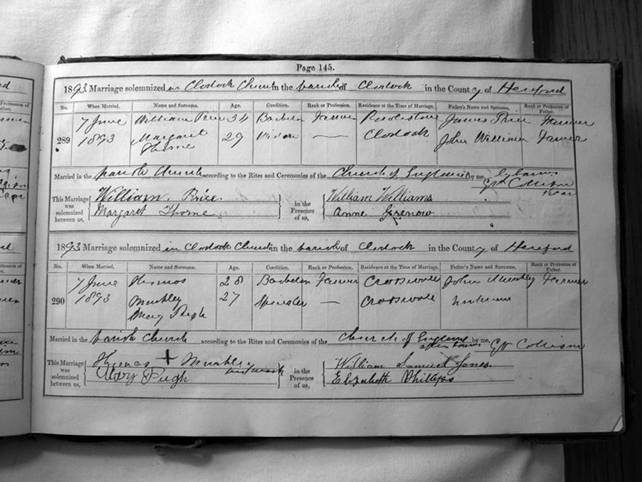 Page 145.
1893 Marriage solemnized in Clodock Church in the parish of Clodock in the County of Hereford
No. When Married. Name and Surname. Age. Condition. Rank or Profession. Residence at the Time of Marriage. Father's Name and Surname. Rank or Profession of Father.
289 7 June 1893 William Price 34 Bachelor Farmer James Price Farmer
Margaret Thorne 29 Widow — Clodock John Williams Farmer
Married in the parish Church according to the Rites and Ceremonies of the Church of England by me,
This Marriage was solemnized between us, William Price Margaret Thorne in the Presence of us, William Williams Anne
1893 Marriage solemnized in Clodock Church in the parish of Clodock in the County of Hereford
No. When Married. Name and Surname. Age. Condition. Rank or Profession. Residence at the Time of Marriage. Father's Name and Surname. Rank or Profession of Father.
290 7 June 1893 Thomas 28 Bachelor Farmer John Farmer
Mary Pugh 27 Spinster —
Married in the parish Church according to the Rites and Ceremonies of the Church of England by me,
This Marriage was solemnized between us, Thomas + his mark Mary Pugh in the Presence of us, William Samuel Jones Elizabeth Phillips